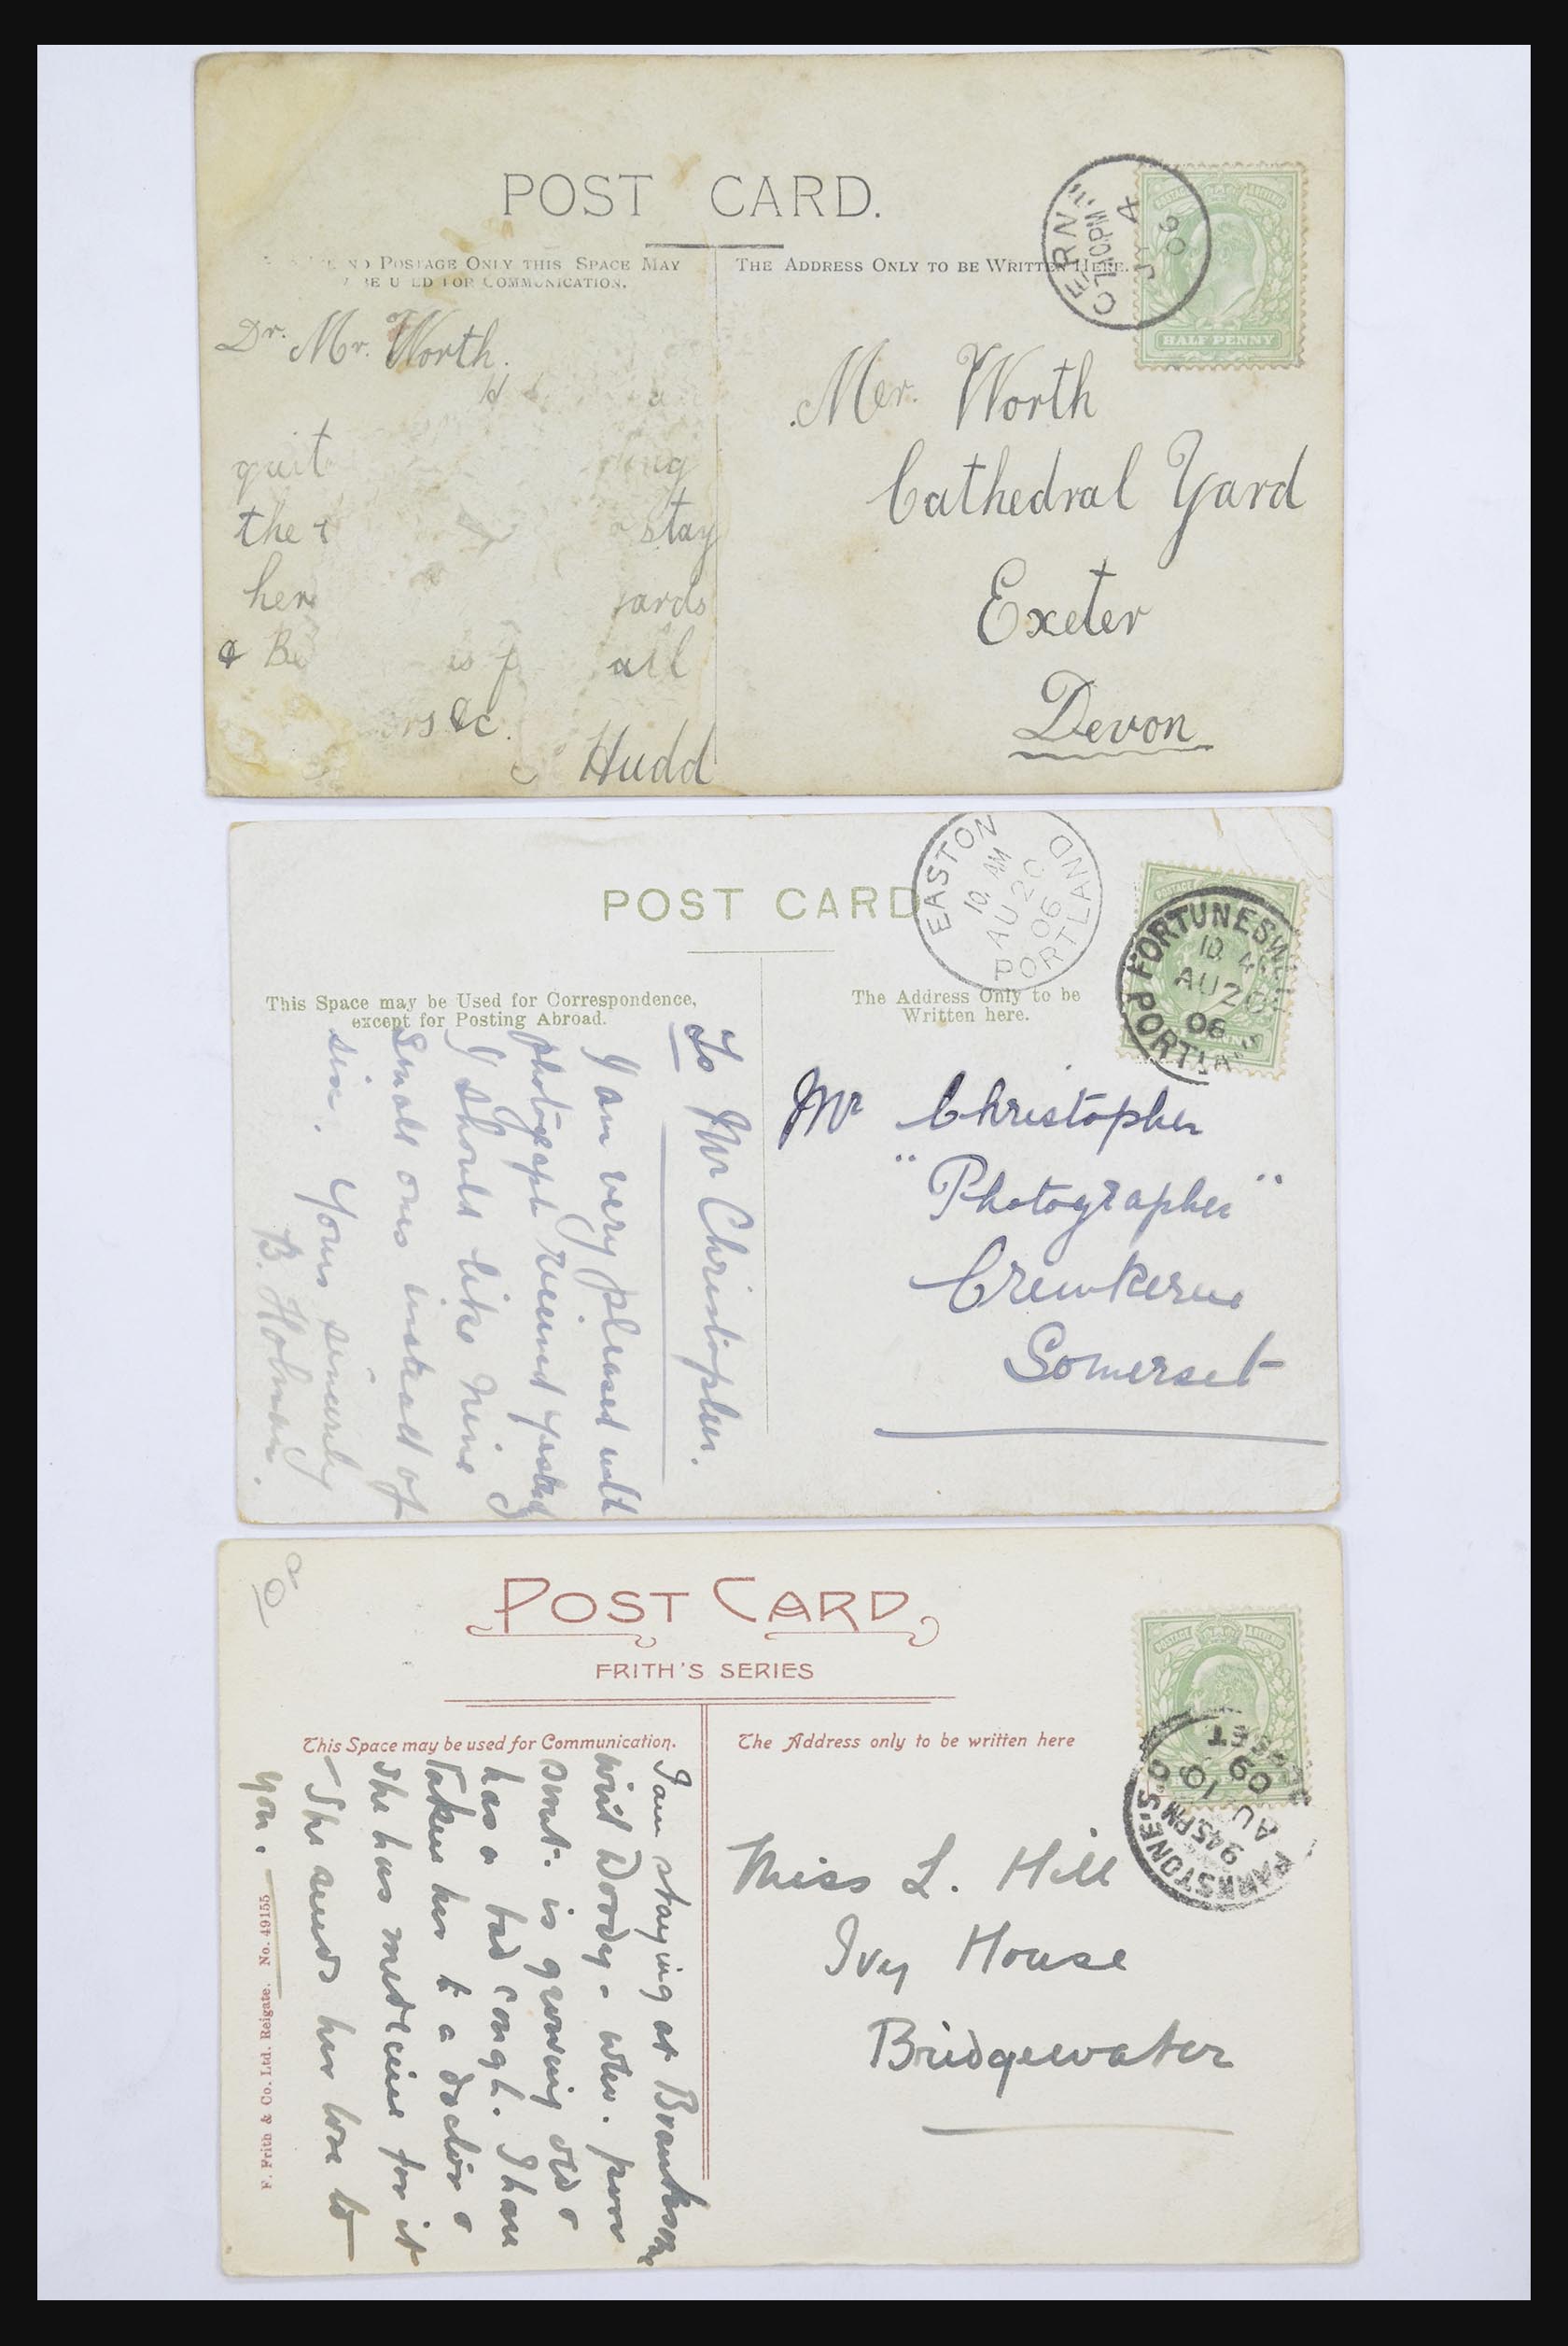 POST CARD.
ND POSTAGE ONLY THIS SPACE MAY
BE U ED FOR COMMUNICATION.
THE ADDRESS ONLY TO BE WRITTEN HERE.
CERNE
7.10PM
JY 4
06
HALF PENNY
Dr. Mr. Worth.
quit
the
stay
her
ards
& Be
is f
all
rs &c.
Hudd
Mer. Worth
Cathedral Yard
Exeter
Devon
POST CARD
EASTON
10 AM
AU 20
06
PORTLAND
FORTUNESW
AU 20
06
PORTLA
This Space may be Used for Correspondence,
except for Posting Abroad.
The Address Only to be
Written here.
To Mr Christopher.
I am very pleased with
photograph received
I should like nine
small ones instead of
six. Yours sincerely
B. Holman.
Mr Christopher
"Photographer"
Crewkerne
Somerset
POST CARD
FRITH'S SERIES
This Space may be used for Communication.
The Address only to be written here
POSTAGE
PARKSTONE S.O.
9.45PM
AU 10
09
I am staying at Branksome
with Doody - who. poor
is growing old &
has a bad cough. I have
taken her to a doctor &
she has medicine for it
- She sends her love to
you.
F. Frith & Co. Ltd. Reigate. No. 49155
Miss L. Hill
Ivy House
Bridgewater